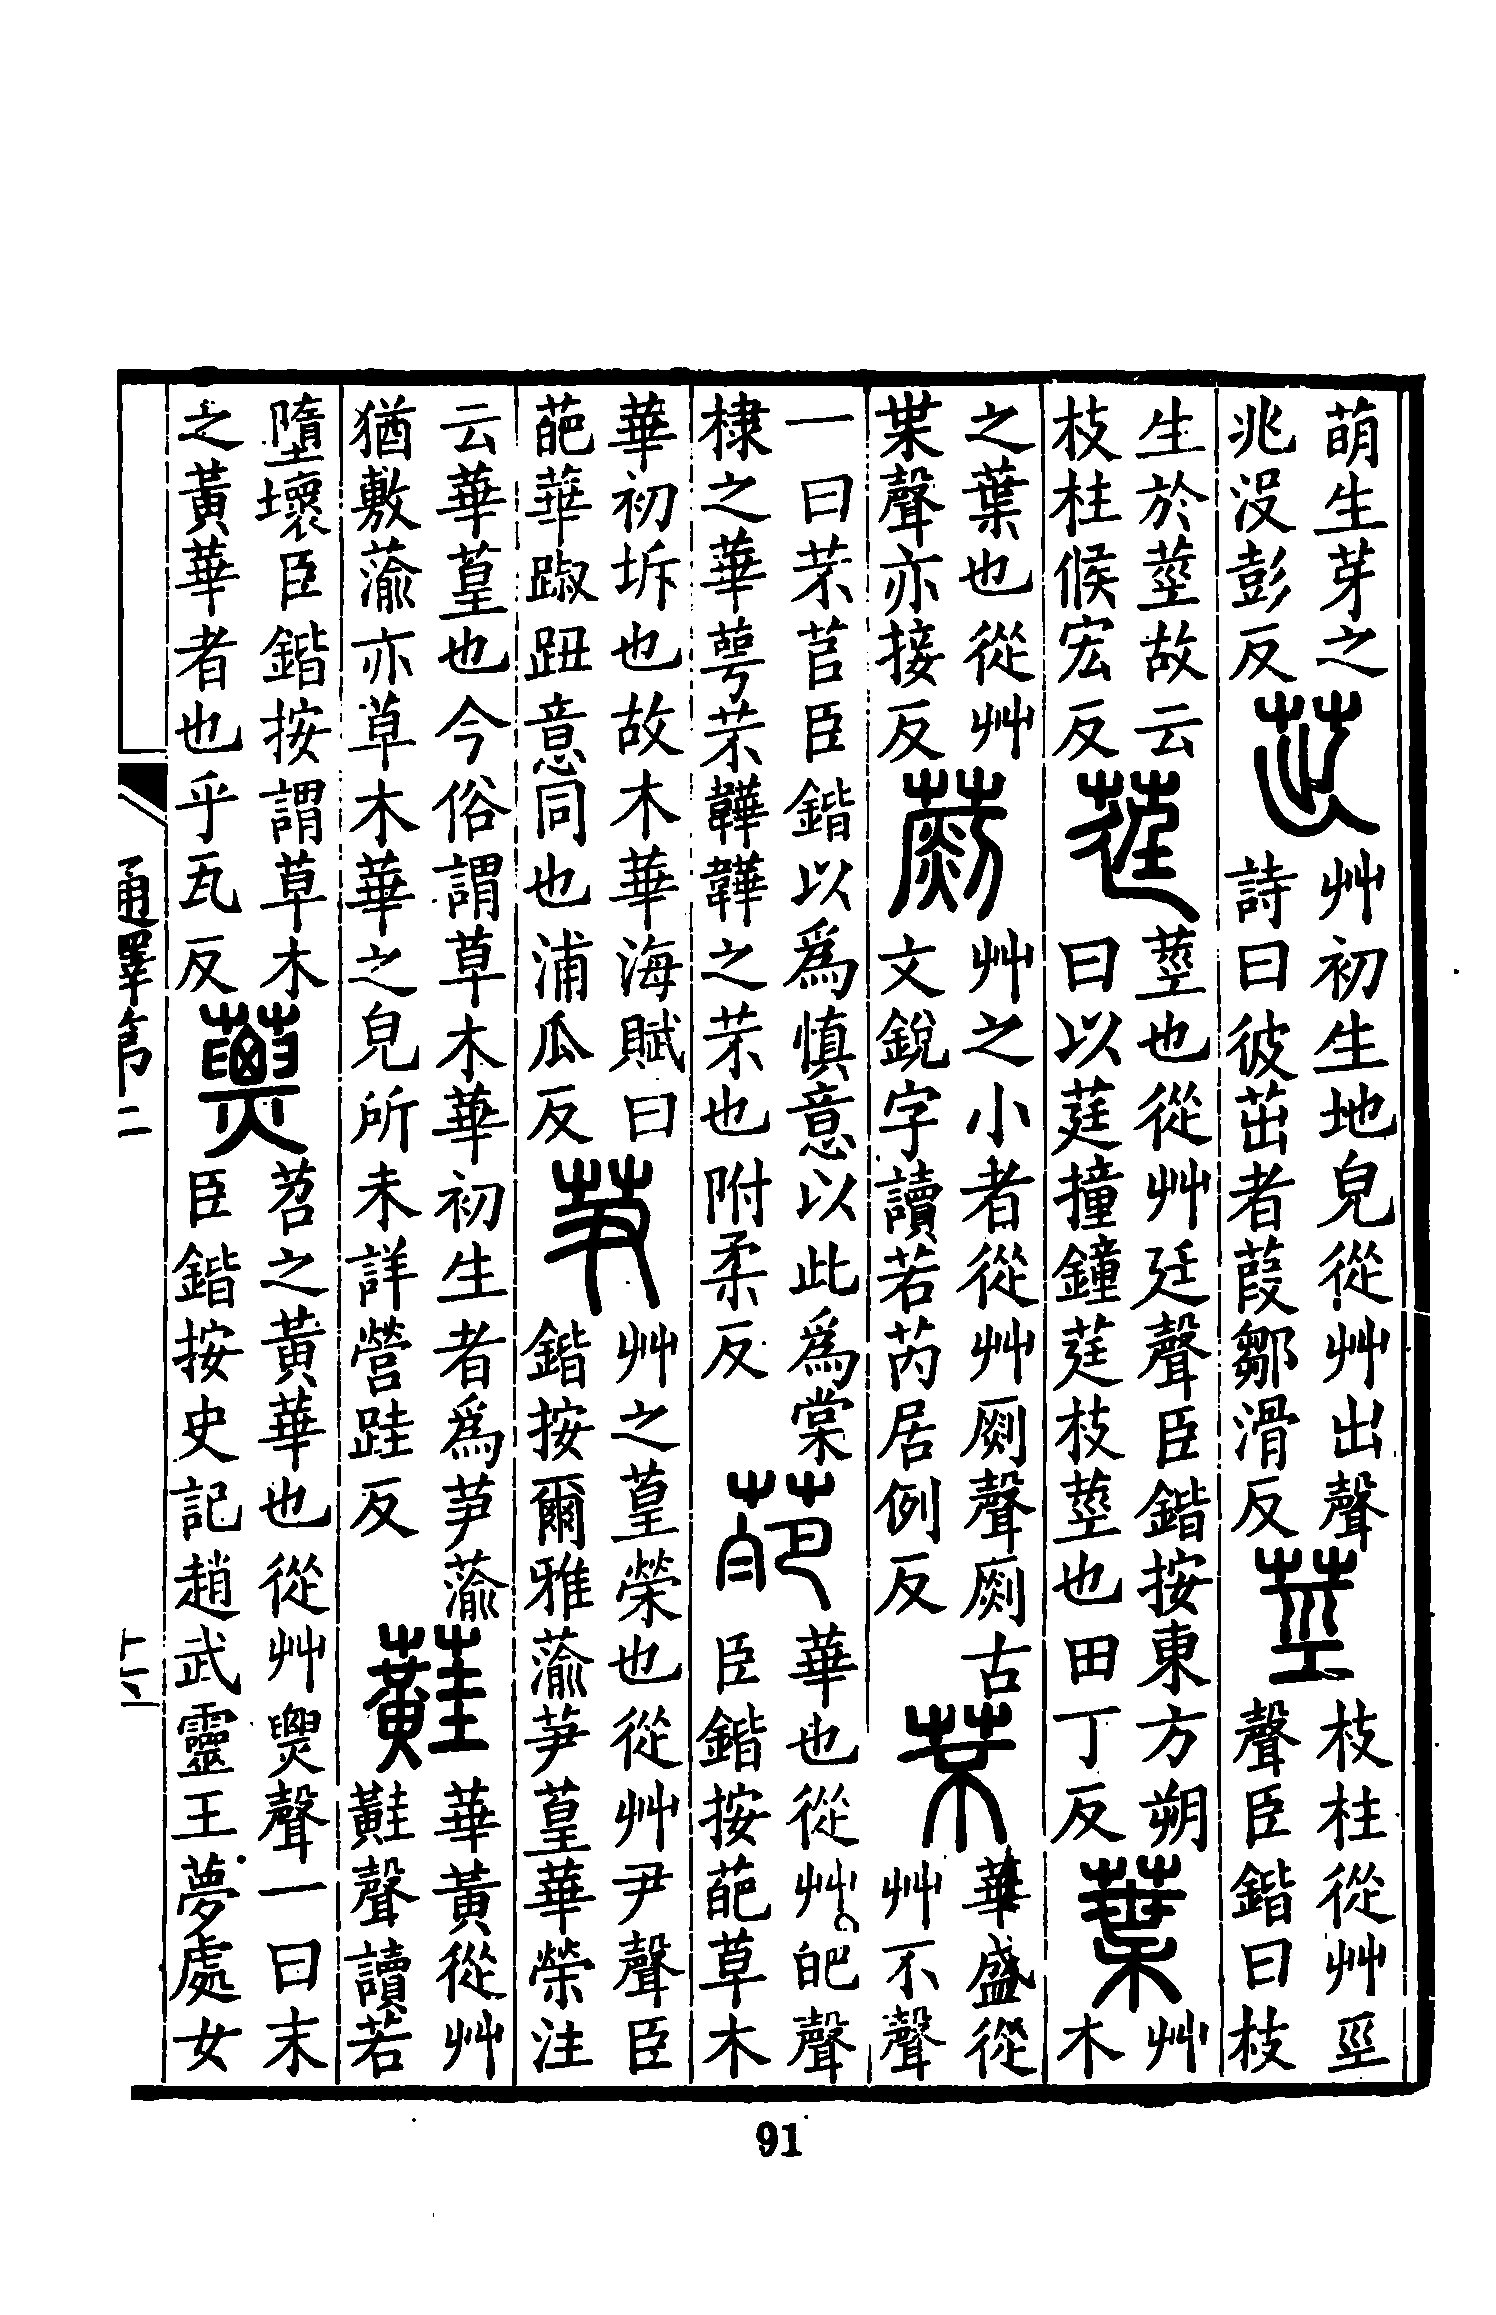 萌生芽之
兆没彭反
茁
艸初生地皃從艸出聲
詩曰彼茁者葭鄒滑反
莖
枝柱從艸巠
聲臣鍇曰枝
生於莖故云
枝柱候宏反
莛
莖也從艸廷聲臣鍇按東方朔
曰以莛撞鐘莛枝莖也田丁反
葉
艸
木
之葉也從艸
枼聲亦接反
艸之小者從艸㓹聲㓹古
文銳字讀若芮居例反
芣
華盛從
艸不聲
一曰芣苢臣鍇以爲慎意以此爲棠
棣之華萼芣韡韡之芣也附柔反
葩
華也從艸皅聲
臣鍇按葩草木
華初坼也故木華海賦曰
葩華踧意同也浦瓜反
芛
艸之葟榮也從艸尹聲臣
鍇按爾雅蕍芛葟華榮注
云華葟也今俗謂草木華初生者爲芛蕍
猶敷蕍亦草木華之皃所未詳營跬反
蘳
華黃從艸
黊聲讀若
墮壞臣鍇按謂草木
之黃華者也乎瓦反
蔈
苕之黃華也從艸㶾聲一曰末
臣鍇按史記趙武靈王夢處女
通釋第二
十六
91